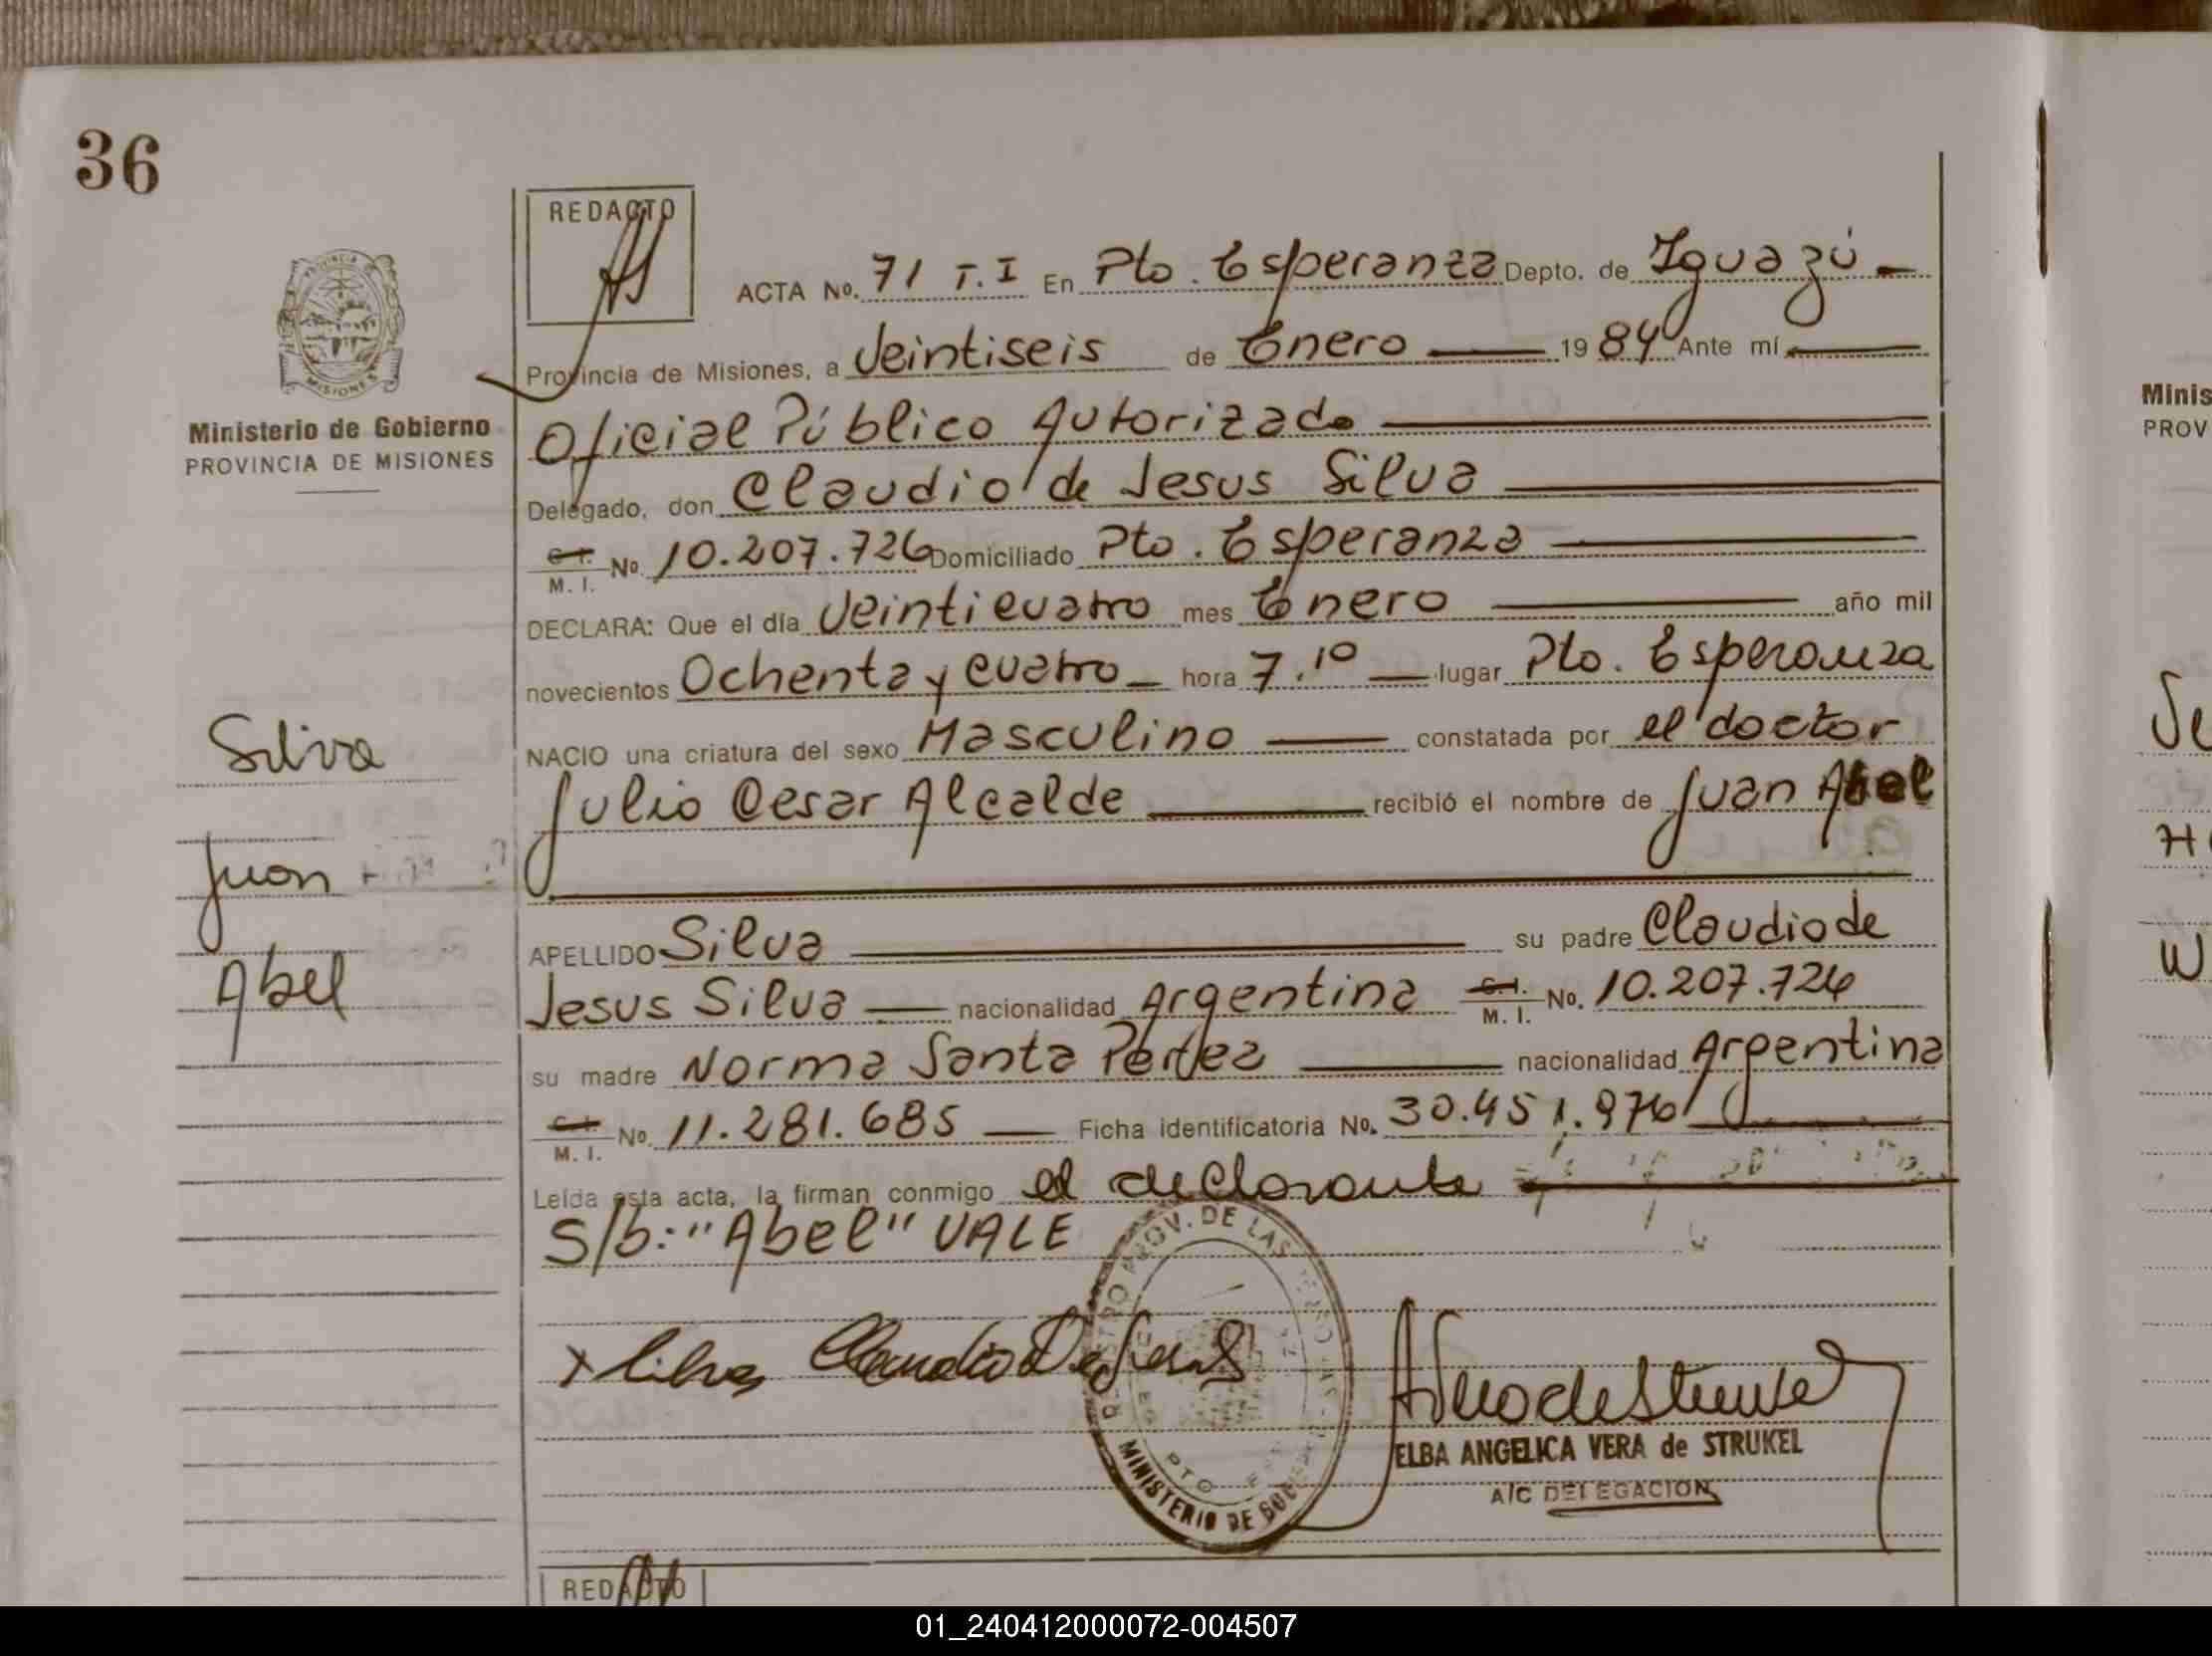 36
REDACTO
ACTA No. 71 T.I En Pto. Esperanza Depto. de Iguazú
Provincia de Misiones, a Veintiseis de Enero 1984 Ante mí
Oficial Público Autorizado
Ministerio de Gobierno
PROVINCIA DE MISIONES
Delegado, don Claudio de Jesus Silva
C. I. M. I. No. 10.207.726 Domiciliado Pto. Esperanza
DECLARA: Que el día Veinticuatro mes Enero año mil
novecientos Ochenta y cuatro hora 7.10 lugar Pto. Esperanza
NACIO una criatura del sexo Masculino constatada por el doctor
Julio Cesar Alcalde recibió el nombre de Juan Abel
Silva
Juan
Abel
APELLIDO Silva su padre Claudio de
Jesus Silva nacionalidad Argentina C. I. M. I. No. 10.207.726
su madre Norma Santa nacionalidad Argentina
C. I. M. I. No. 11.281.685 Ficha identificatoria No. 30.451.976
Leída esta acta, la firman conmigo el declarante
S/b: "Abel" VALE
x Silva Claudio De Jesus
MINISTERIO DE
PTO
ELBA ANGELICA VERA de STRUKEL
A/C DELEGACION
REDACTO
Minis
PROV
01_240412000072-004507